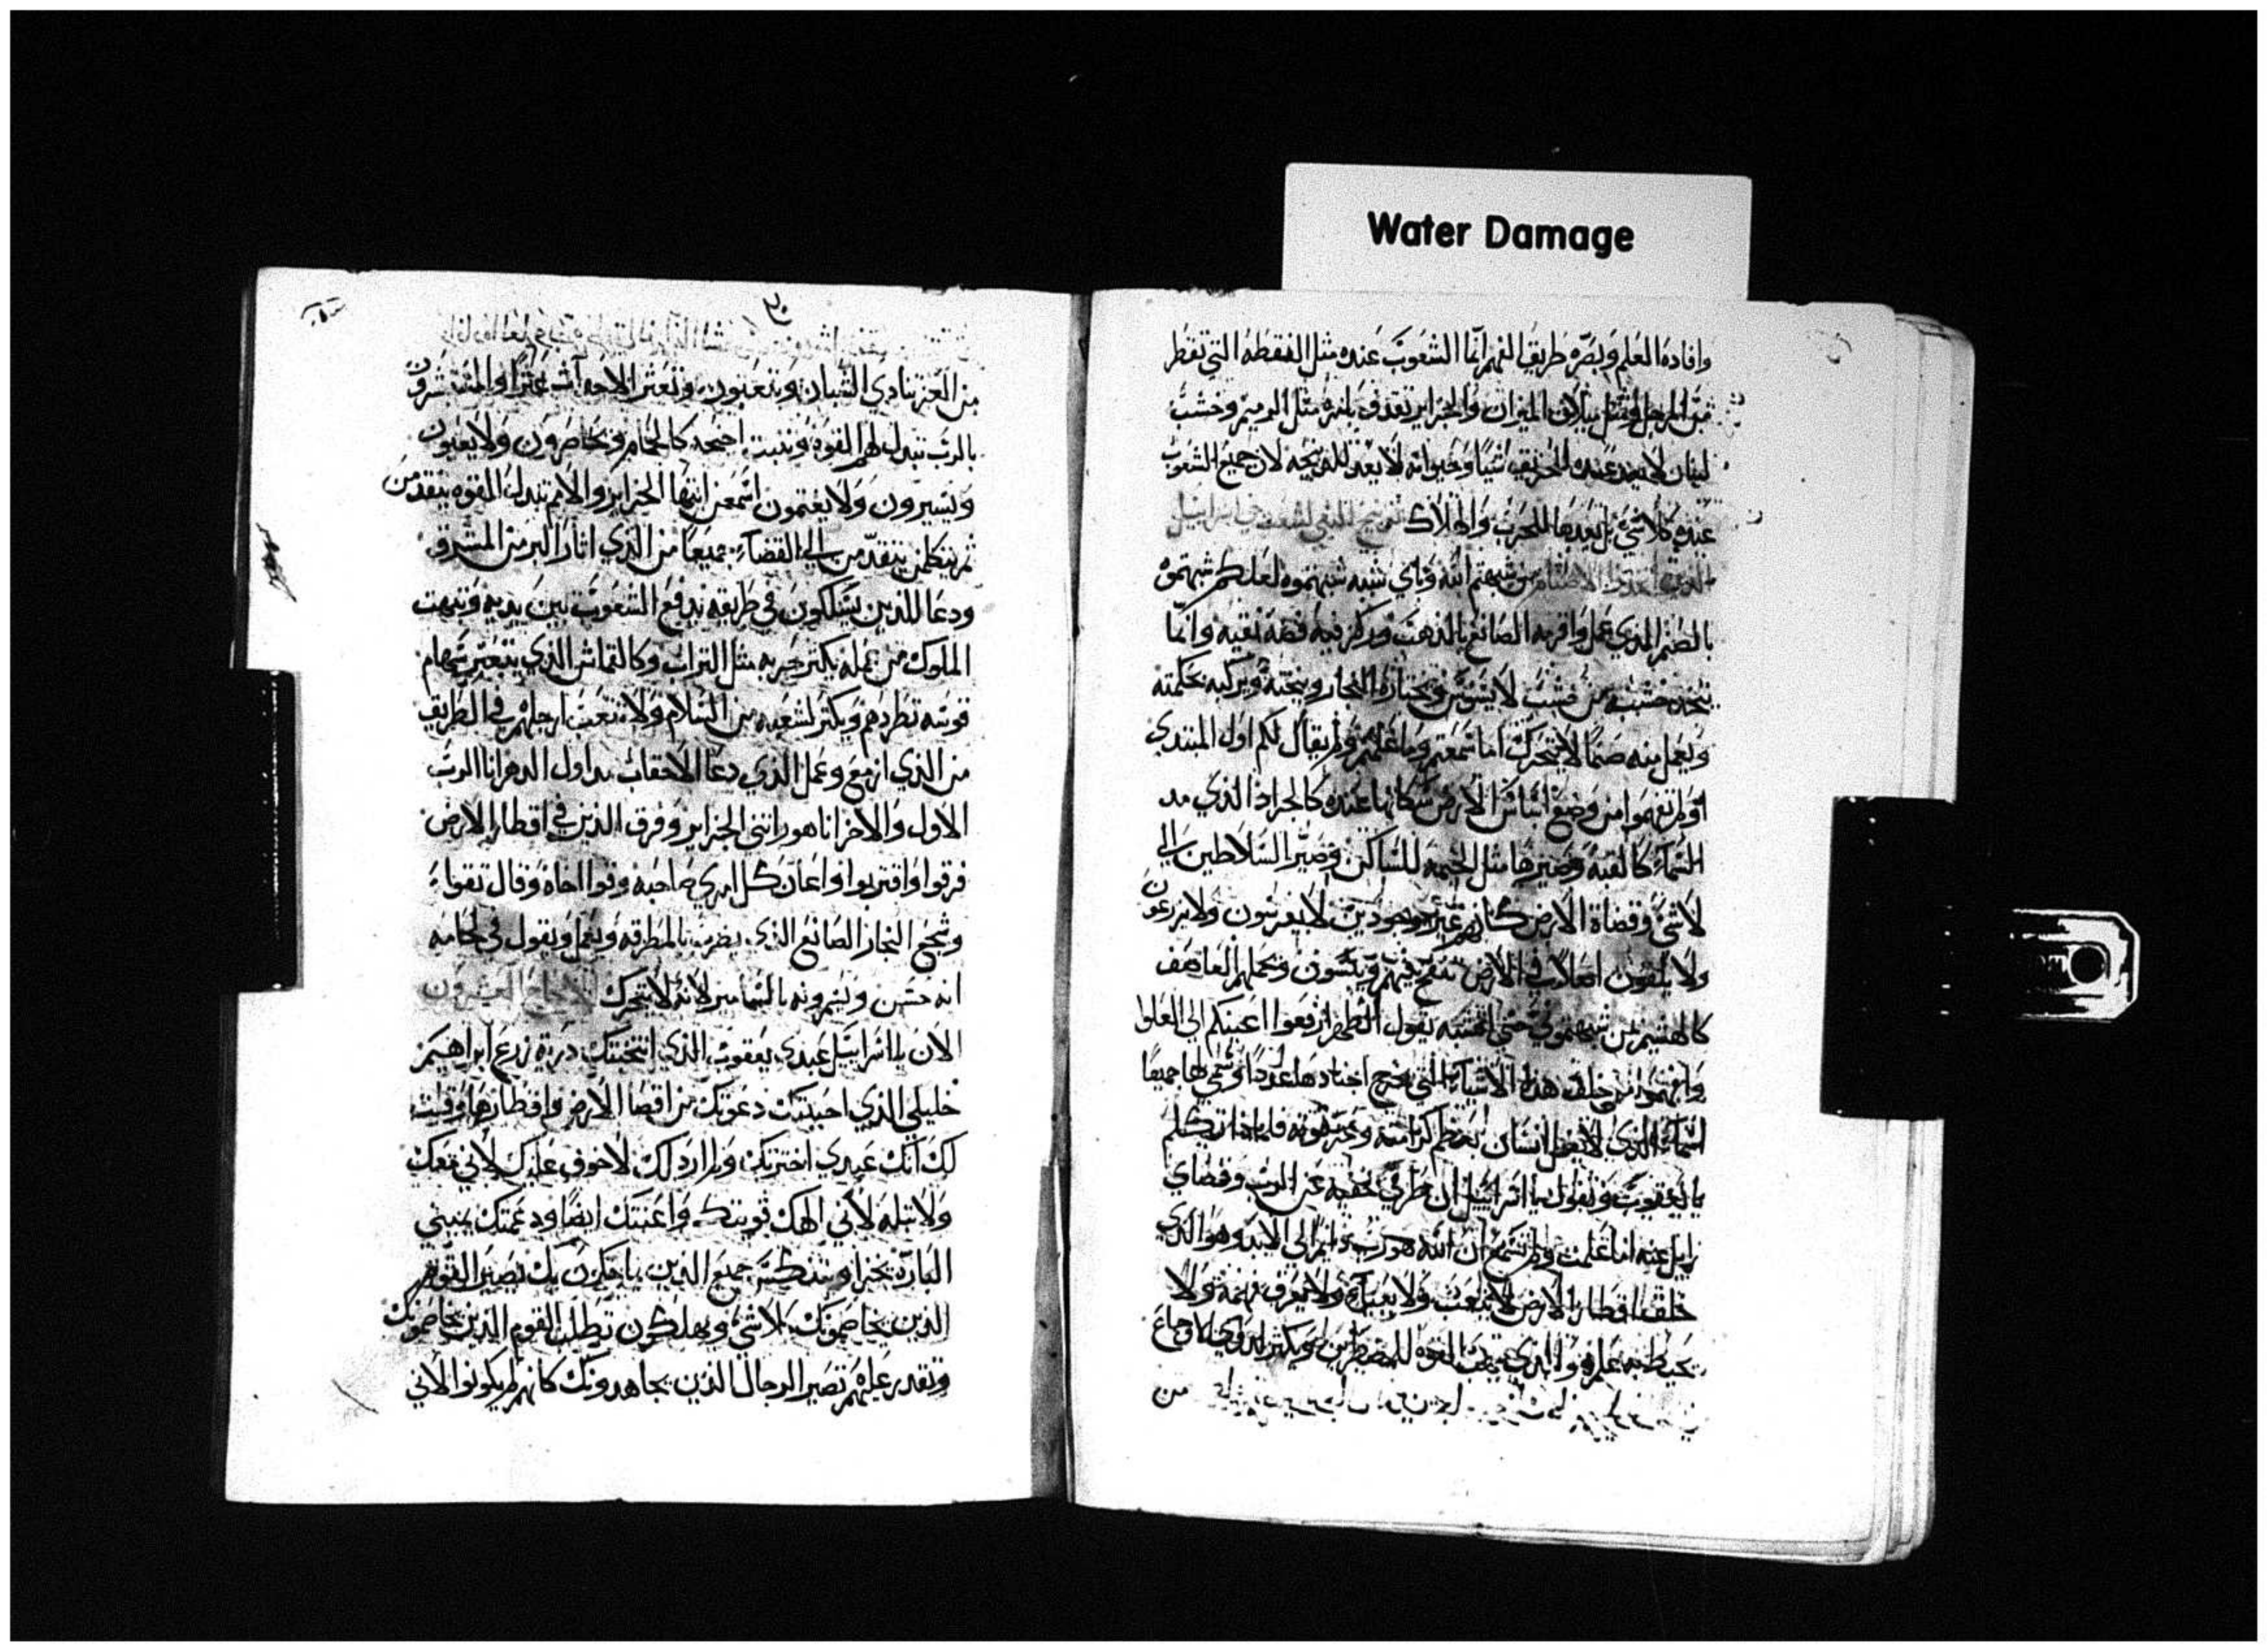 Water Damage
وافاده العلم وبصره طريق الفهم انما الشعوب عنده مثل النقطه التي تقطر
من المرجل ومثل ميلان الميزان والجزاير تقذف بانها مثل الرميم وخشب
لبنان لا يعد عنده للحريق شيا وحيوانه لا يعد للذبيحه لان جميع الشعوب
عنده كلا شي بل يعدها للحرب والهلاك
بمن شبهتم الله وباي شبه شبهتموه لعلكم شبهتموه
بالصنم الذي عمل وافرغه الصانع بالذهب وركز فيه فضه نقيه وانما
يتخذه خشبه من خشب لا يسوس ويختاره النجار وينحته ويركبه بحكمته
ويعمل منه صنما لا يتحرك اما سمعتم وما علمتم ولم يقال لكم اول المبتدي
اولم تفهموا من وضع اساس الارض سكانها عنده كالجراد الذي مد
السماء كالقبه وصيرها مثل الخيمه للساكن وصير السلاطين الى
لا شي وقضاة الارض كانهم غير موجودين لا يغرسون ولا يزرعون
ولا يلقون اصلا في الارض تنفخ فيهم وييبسون وتحملهم العاصف
كالهشيم بمن شبهتموني حتى اشبه يقول الطهر ارفعوا اعينكم الى العلو
وافهموا من خلق هذه الاشياء التي يخرج اجنادها عددا وسمى لها جميعا
اسماء الذي لا يضل انسان بعظم كرامته وعز قوته فلماذا تتكلم
يا يعقوب وتقول يا اسراييل ان طرقي خفيه عن الرب وقضاي
زايل عنه اما علمت ولم تسمع ان الله هو رب دايم الى الابد وهو الذي
خلق اقطار الارض لا يتعب ولا يعيا ولا يعرف فهمه ولا
يحيط به علمه والذي يهب القوه للمضطرين ويكثر لذوي الاوجاع
من
٢٠
من العز ينادي الشبان ويتعبون وتعثر الاحداث عثرا والمنتشرون
بالرب تبدل لهم القوه وتنبت اجنحه كالحمام ويحاضرون ولا يعيون
ويسيرون ولا يغتمون اسمعن ايتها الجزاير والامم تبدل القوه يتقدمن
ثم يتكلمن يتقدمن الى القضاء جميعا من الذي اثار البر من المشرق
ودعا للذين يسلكون في طريقه يدفع الشعوب بين يديه وتبهت
الملوك من عمله يكثر حربه مثل التراب وكالقماش الذي يتبعثر سهام
قوسه تطردهم ويكثر لشعبه من السلام ولا تتعب ارجلهم في الطريق
من الذي ازمع وعمل الذي دعا الاحقاب من اول الدهر انا الرب
الاول والاخر انا هو رانني الجزاير وفرق الذين في اقطار الارض
فرقوا واقتربوا واعان كل امري صاحبه وقوا اخاه وقال تقواء
وشجع النجار الصانع الذي يضرب بالمطرقه ويعمل ويقول في لحامه
انه حسن ويسمرونه بالمسامير لانه لا يتحرك الاصحاح العشرون
الان يا اسراييل عبدي يعقوب الذي انتخبتك ذرية زرع ابراهيم
خليلي الذي احببتك دعوتك من اقصا الارض واقطارها وقلت
لك انك عبدي اخترتك ولم اردلك لا خوف عليك لاني معك
ولا تبله لاني الهك قويتك واعنتك ايضا ودعمتك بيميني
البارة يخزا وينكسر جميع الذين يماحكون بك تصير القوم
الذين يخاصمونك كلا شي ويهلكون تطلب القوم الذين يخاصمونك
وتقدر عليهم تصير الرجال الذين يجاهدونك كانهم لم يكونوا لاني